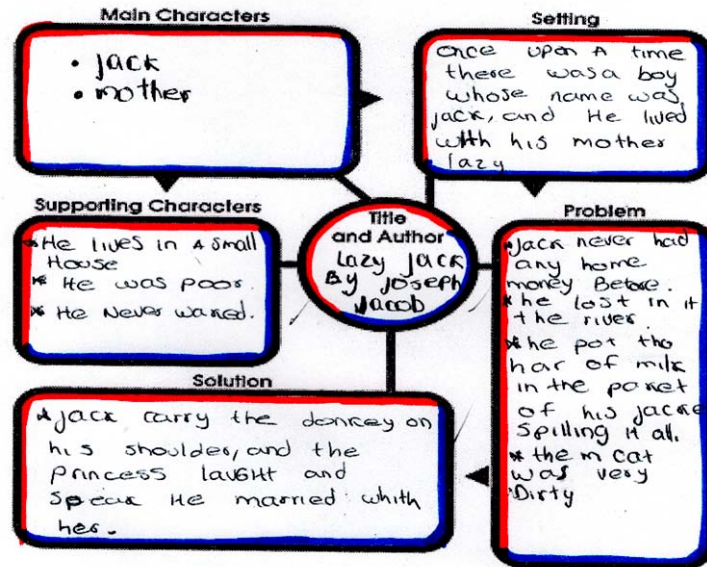 Main Characters
• Jack
• mother
Setting
once upon A time
there was a boy
whose name was,
jack, and He lived
with his mother
lazy
Supporting Characters
* He lives in a small
House
* He was poor.
* He Never warked.
Title
and Author
Lazy Jack
By Joseph
Jacob
Problem
• Jack never had
any home
money Before.
* he lost in it
the river.
* he pot the
har of milk
in the poket
of his jacke
spilling it all.
* the m cat
was very
Dirty
Solution
* Jack carry the donkey on
his shoulder, and the
princess laught and
speak He married whith
her.